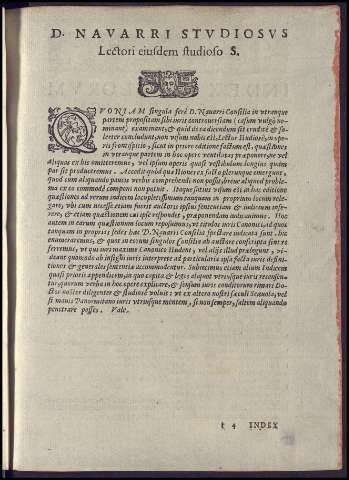 D. NAVARRI STVDIOSVS
Lectori eiusdem studioso S.
QVONIAM singula ferè D. Navarri Consilia in vtranque
partem propositam sibi iuris controuersiam (casum vulgò no-
minant) examinant, & quid de ea dicendum sit eruditè & so-
lerter concludunt, non visum nobis est, Lector studiose, in ope-
ris frontispitio, sicut in priore editione factum est, quæstiones
in vtranque partem in hoc opere ventilatas præponere, ne vel
aliquas ex his omitteremus, vel ipsum operis quasi vestibulum longius quàm
par sit produceremus. Accedit quòd quæstiones ex facto plerumque emergunt,
quod cum aliquando paucis verbis comprehendi non possit, breue aliquod proble-
ma ex eo commodè componi non potuit. Itaque satius visum est in hac editione
quæstiones ad rerum indicem locupletissimum tanquam in proprium locum rele-
gare, vbi cum necesse etiam fuerit auctoris ipsius sententiam & iudicium inse-
rere, & etiam quæstionem cui ipse respondet, præponendam iudicauimus. Hoc
autem in earum quæstionum locum reposuimus, vt titulos iuris Canonici, ad quos
tanquam in proprias sedes hæc D. Navarri Consilia spectare iudicata sunt hoc
enumeraremus, & quæ in eorum singulos Consilia ab auctore conscripta sunt re-
ferremus, vt qui vel maximè Canonibus student, vel alijs illud prælegunt, vi-
deant quonam ab insigni iuris interprete ad particularia ipsa facta iuris defini-
tiones & generales sententiæ accommodentur. Subiecimus etiam alium Indicem
quasi prioris appendicem, in quo capita & leges aliquot vtriusque iuris recensen-
tur, quarum verba in hoc opere explicare, & sensum iuris conditorum rimari Do-
ctor noster diligenter & studiosè voluit: vt ex altera nostri sæculi Scæuola, vel
si mauis Panormitano iuris vtriusque mentem, si non semper, saltem aliquando
penetrare posses. Vale.
† 4 INDEX